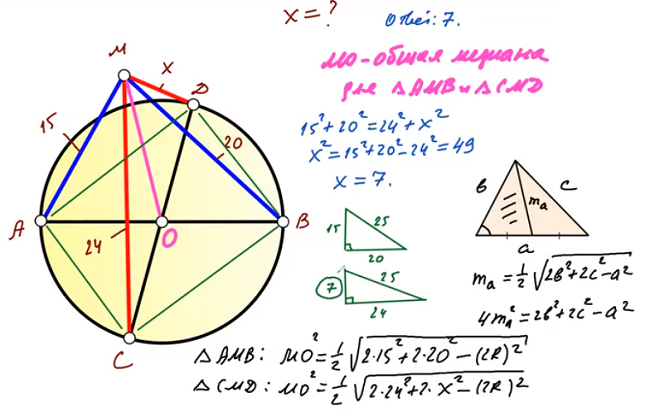 x = ?
Ответ: 7.
MO - общая медиана
для △AMB и △CMD
15² + 20² = 24² + x²
x² = 15² + 20² - 24² = 49
x = 7.
M
x
D
15
20
A
O
B
24
C
15
25
20
7
25
24
b
mₐ
c
a
mₐ = ½√(2b² + 2c² - a²)
4mₐ² = 2b² + 2c² - a²
△AMB: MO² = ½√(2·15² + 2·20² - (2R)²)
△CMD: MO² = ½√(2·24² + 2·x² - (2R)²)